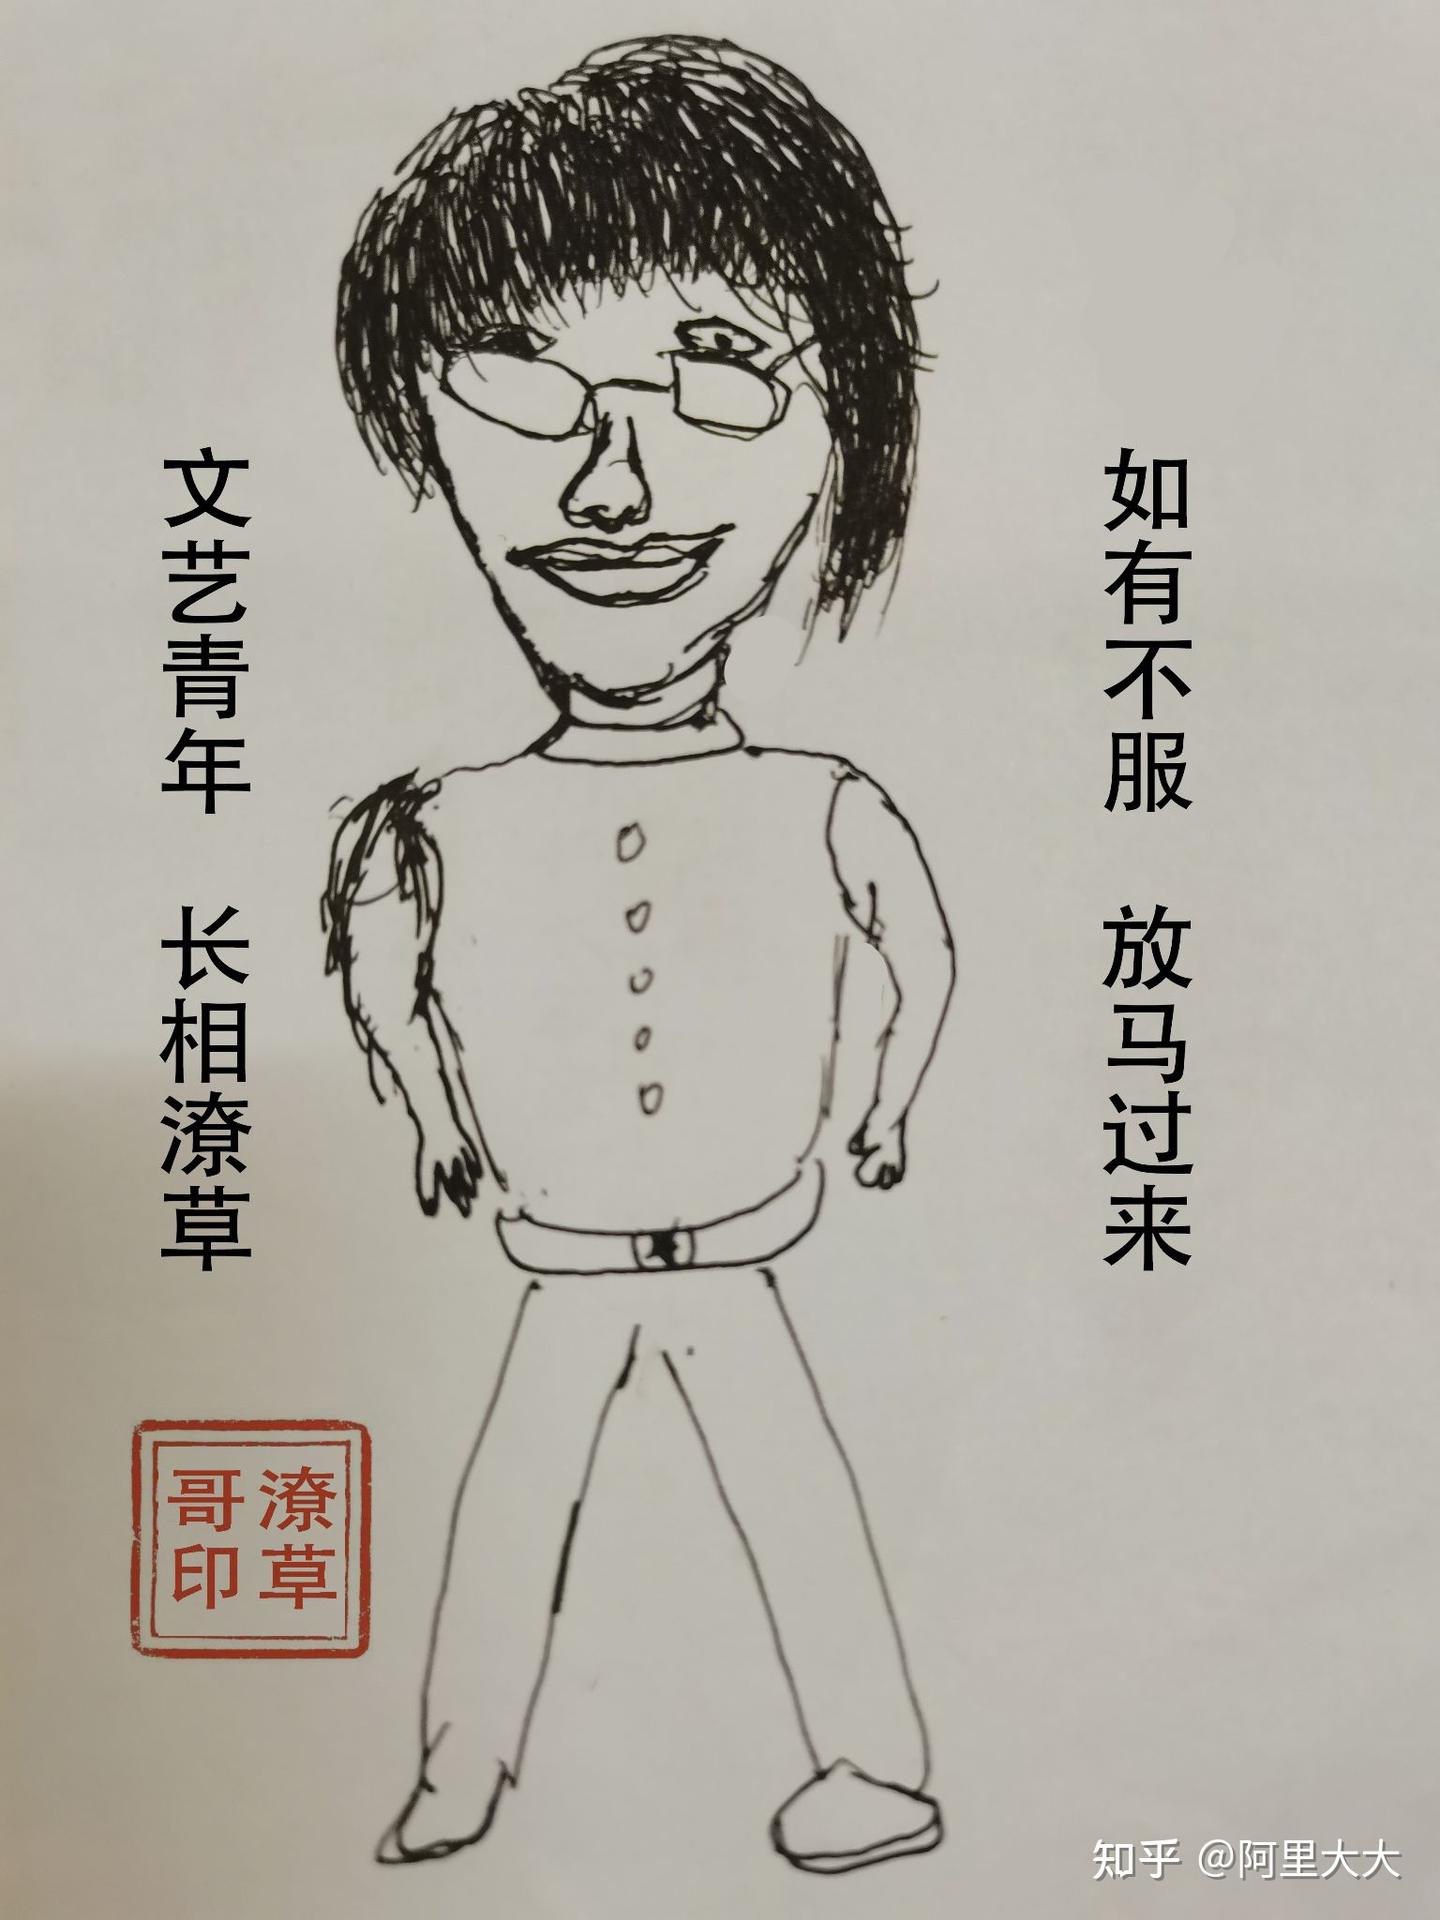 文艺青年 长相潦草
如有不服 放马过来
潦草
哥印
知乎 @阿里大大